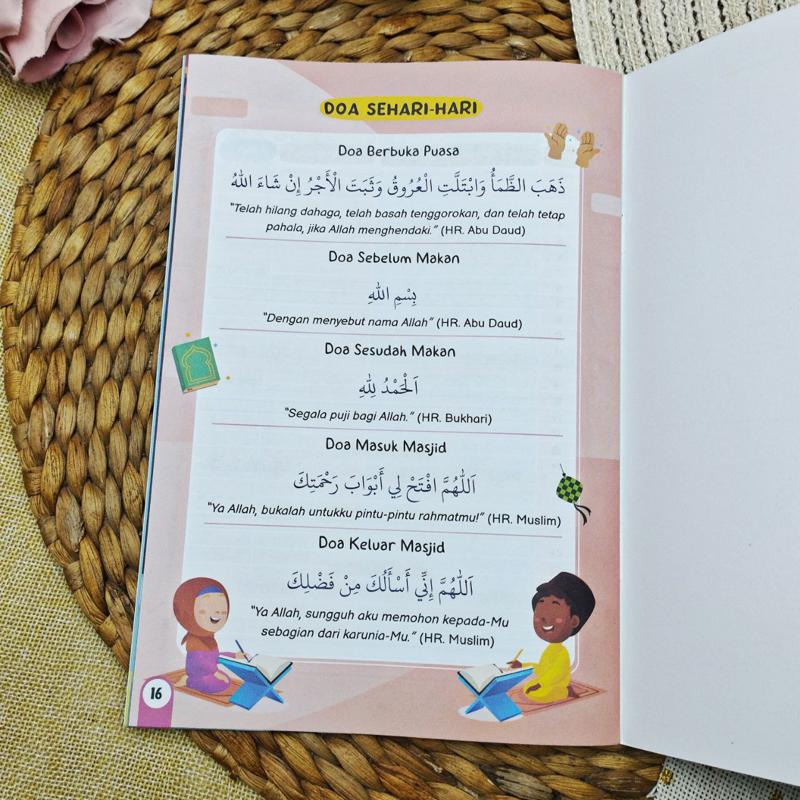 DOA SEHARI-HARI
Doa Berbuka Puasa
ذَهَبَ الظَّمَأُ وَابْتَلَّتِ الْعُرُوقُ وَثَبَتَ الْأَجْرُ إِنْ شَاءَ اللهُ
"Telah hilang dahaga, telah basah tenggorokan, dan telah tetap
pahala, jika Allah menghendaki." (HR. Abu Daud)
Doa Sebelum Makan
بِسْمِ اللهِ
"Dengan menyebut nama Allah" (HR. Abu Daud)
Doa Sesudah Makan
اَلْحَمْدُ لِلهِ
"Segala puji bagi Allah." (HR. Bukhari)
Doa Masuk Masjid
اَللّٰهُمَّ افْتَحْ لِي أَبْوَابَ رَحْمَتِكَ
"Ya Allah, bukalah untukku pintu-pintu rahmatmu!" (HR. Muslim)
Doa Keluar Masjid
اَللّٰهُمَّ إِنِّي أَسْأَلُكَ مِنْ فَضْلِكَ
"Ya Allah, sungguh aku memohon kepada-Mu
sebagian dari karunia-Mu." (HR. Muslim)
16